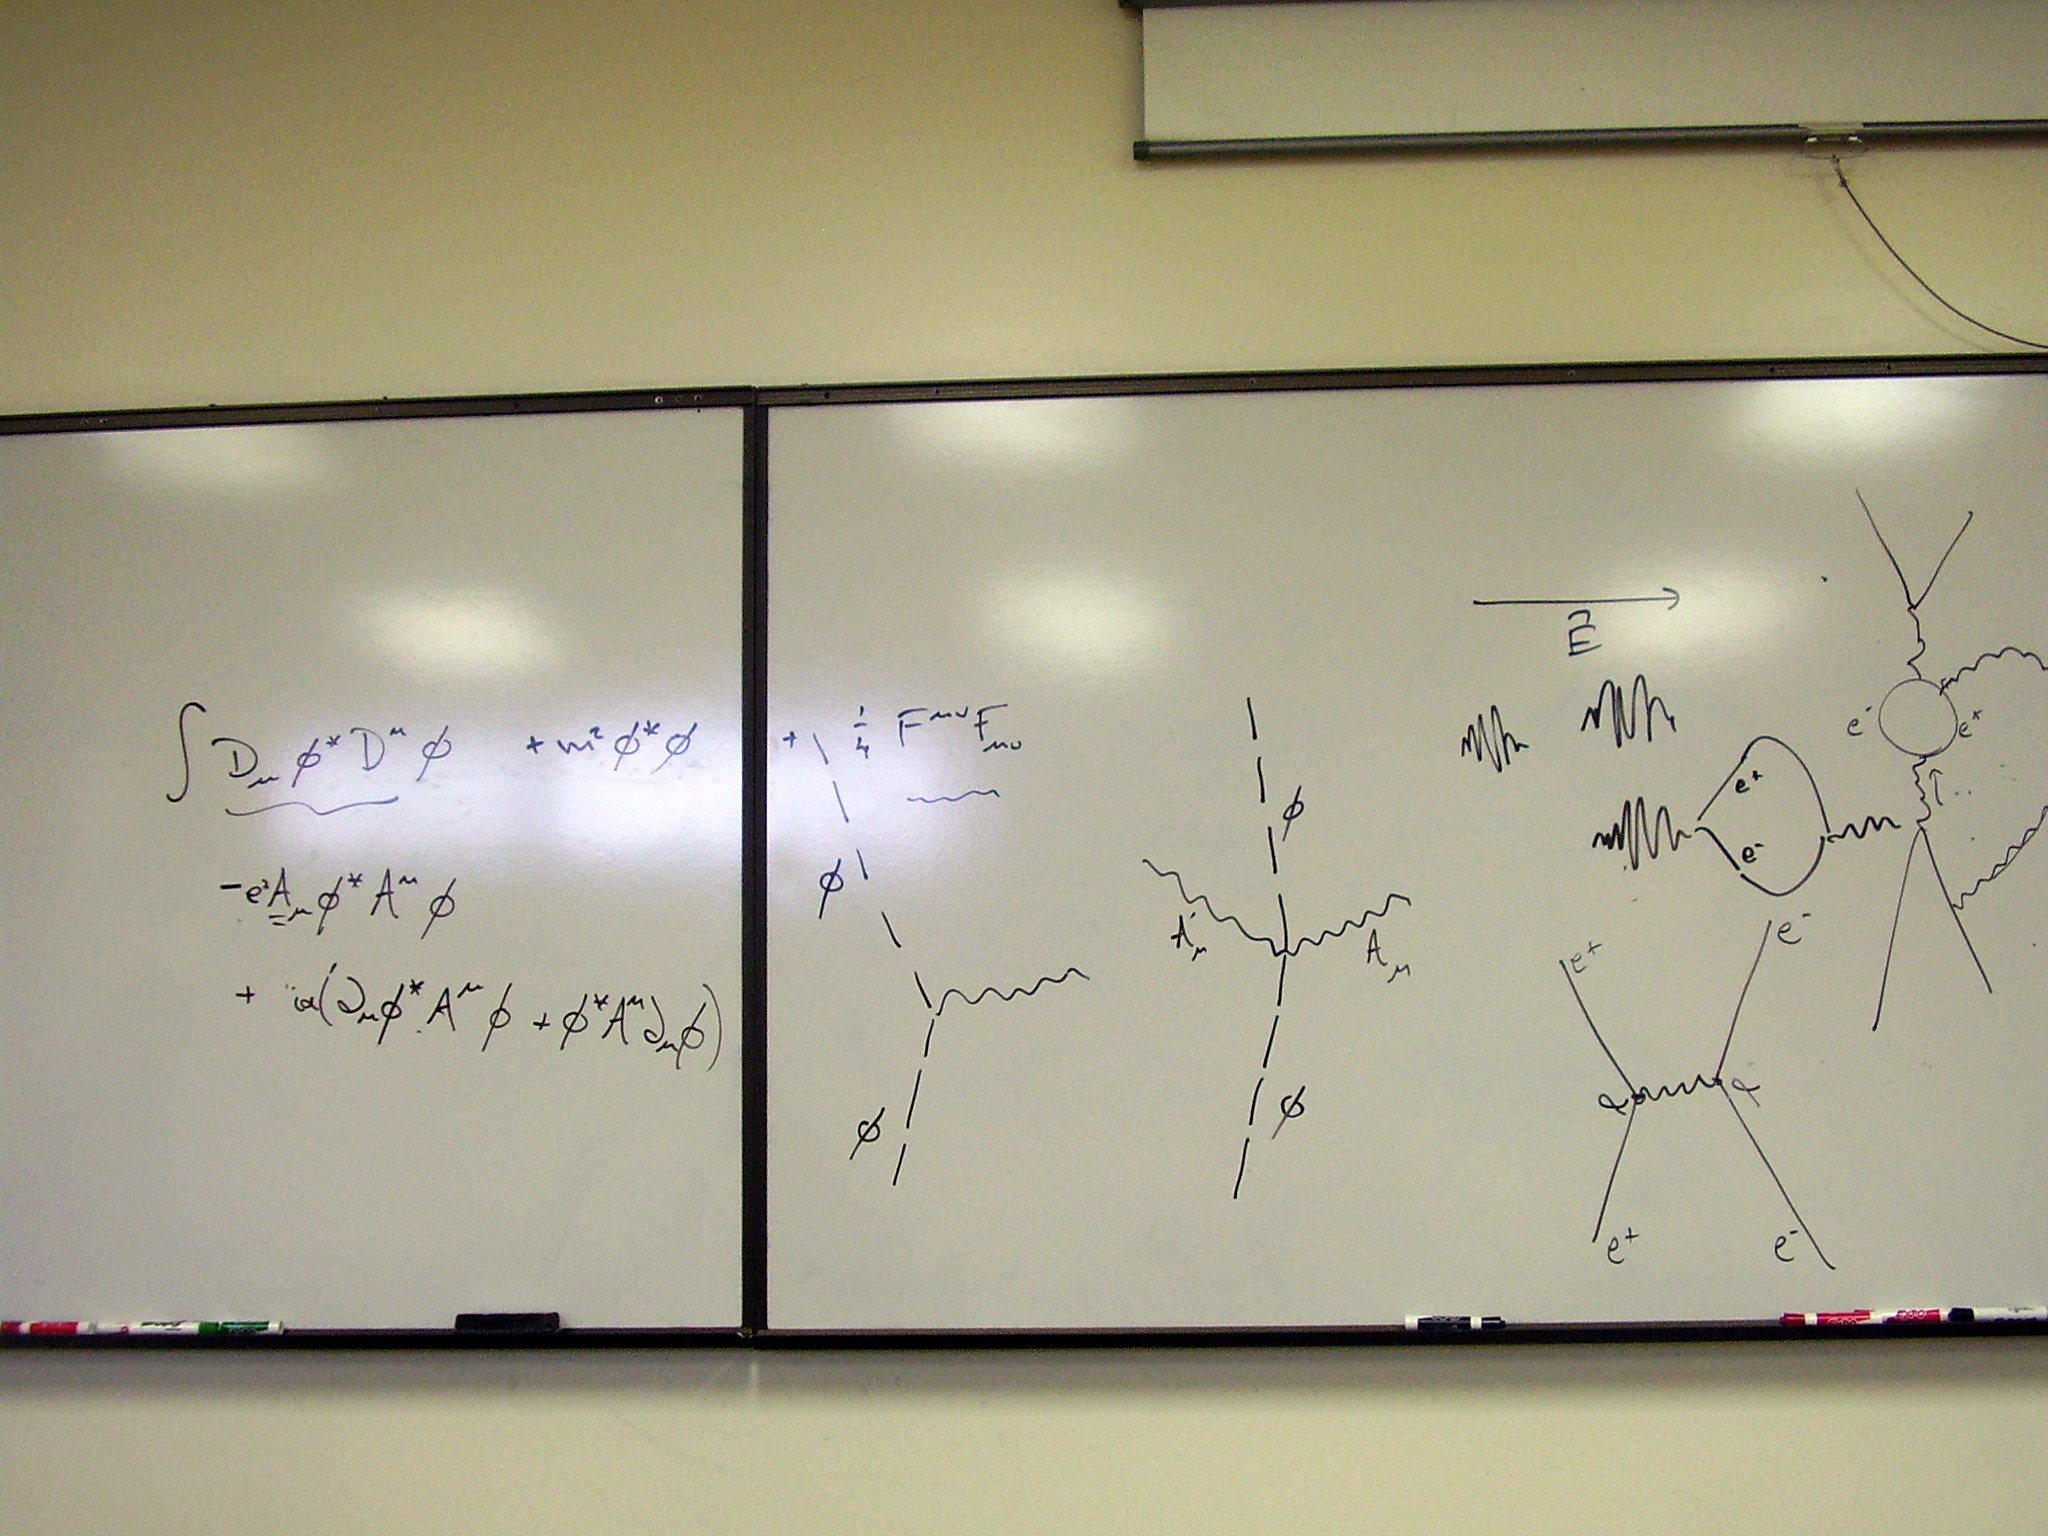 ∫ D_μ ϕ* D^μ ϕ + m² ϕ*ϕ + ¼ F^{μν} F_{μν}
-e² A_μ ϕ* A^μ ϕ
+ (∂_μ ϕ* A^μ ϕ + ϕ* A^μ ∂_μ ϕ)
ϕ
ϕ
ϕ
A_μ
A_μ
ϕ
E⃗
e⁺
e⁻
e⁻
e⁺
e⁺
e⁻
α
α
e⁺
e⁻